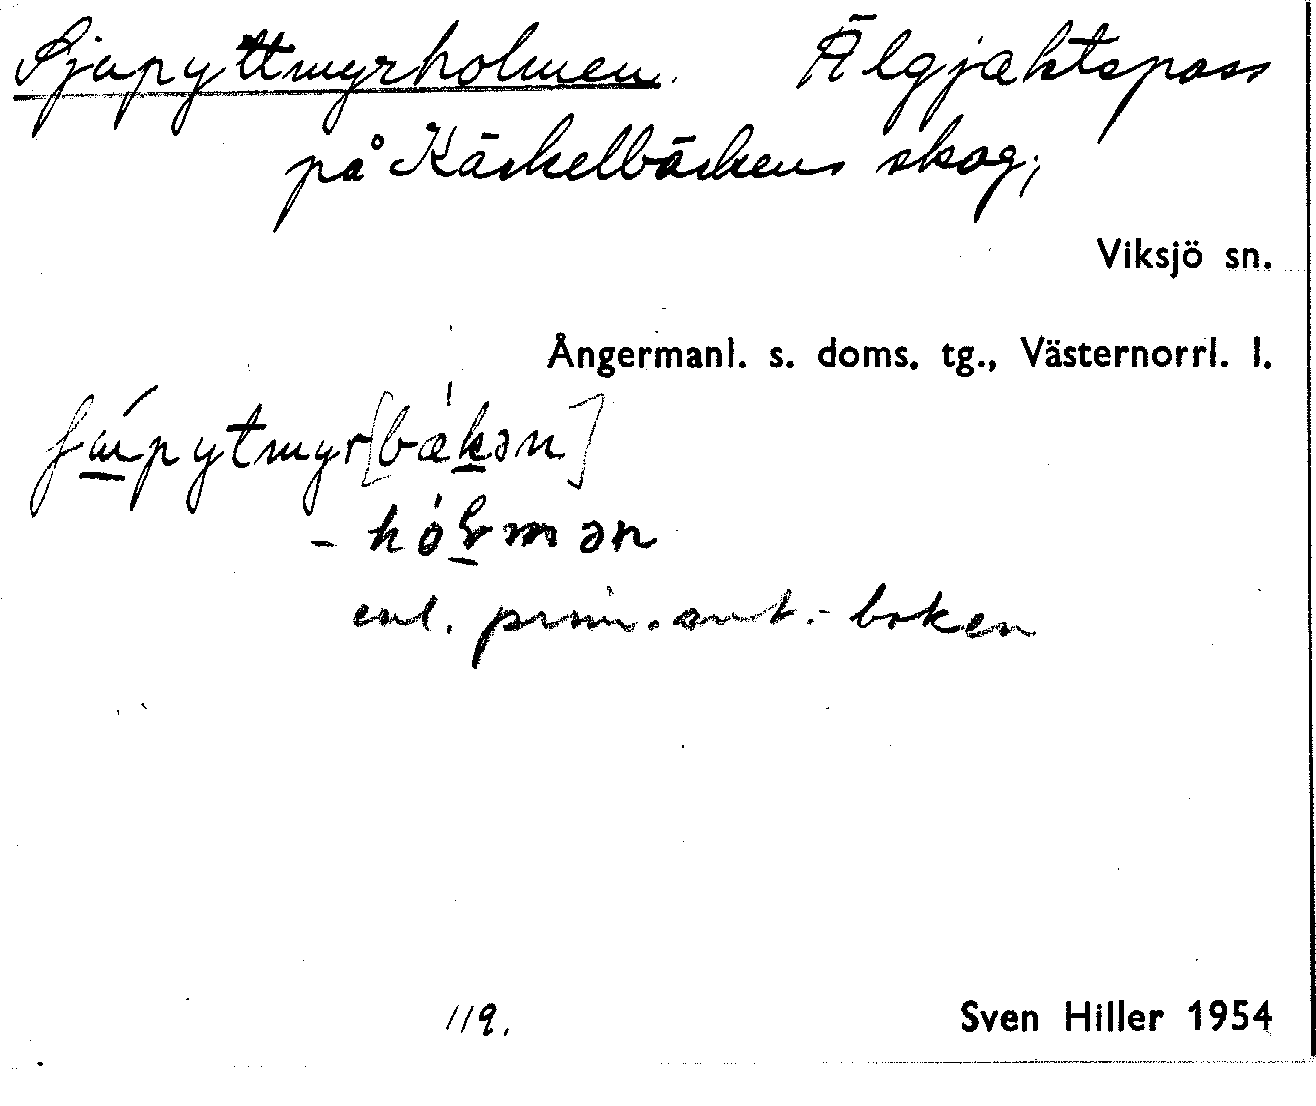 Sjupyttmyrholmen. Älgjaktspass
på Käckelbäckens skog;
Viksjö sn.
Ångermanl. s. doms. tg., Västernorrl. l.
[bǽkən]
enl. prim. ant.-boken
119.
Sven Hiller 1954